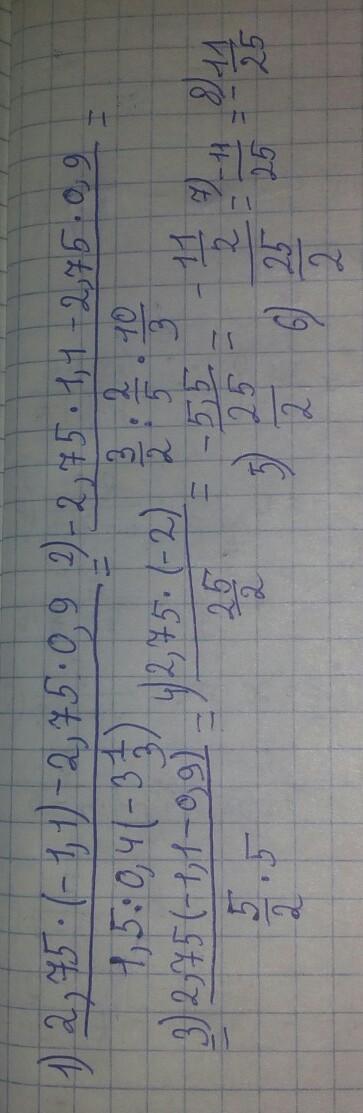 1) 2,75·(-1,1)-2,75·0,9 / 1,5:0,4(-3 1/3) = 2) -2,75·1,1-2,75·0,9 / 3/2 : 2/5 · 10/3 =
= 3) 2,75(-1,1-0,9) / 5/2 · 5 = 4) 2,75·(-2) / 25/2 = 5) -5,5 / 25/2 = 6) - 11/2 / 25/2 = 7) -11/25 = 8) - 11/25